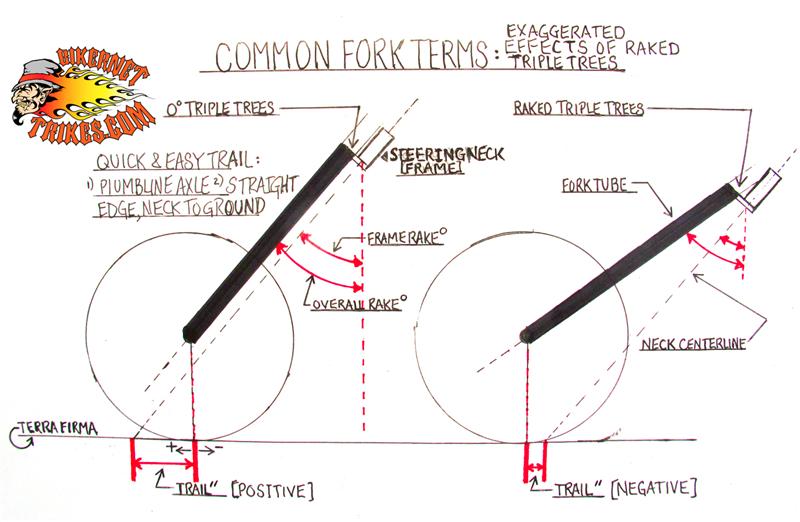 BIKERNET
TRIKES.COM
COMMON FORK TERMS:
EXAGGERATED
EFFECTS OF RAKED
TRIPLE TREES
0° TRIPLE TREES
RAKED TRIPLE TREES
STEERING NECK
[FRAME]
QUICK & EASY TRAIL:
1) PLUMBLINE AXLE 2) STRAIGHT
EDGE, NECK TO GROUND
FORK TUBE
FRAME RAKE°
OVERALL RAKE°
NECK CENTERLINE
TERRA FIRMA
+ -
TRAIL" [POSITIVE]
TRAIL" [NEGATIVE]